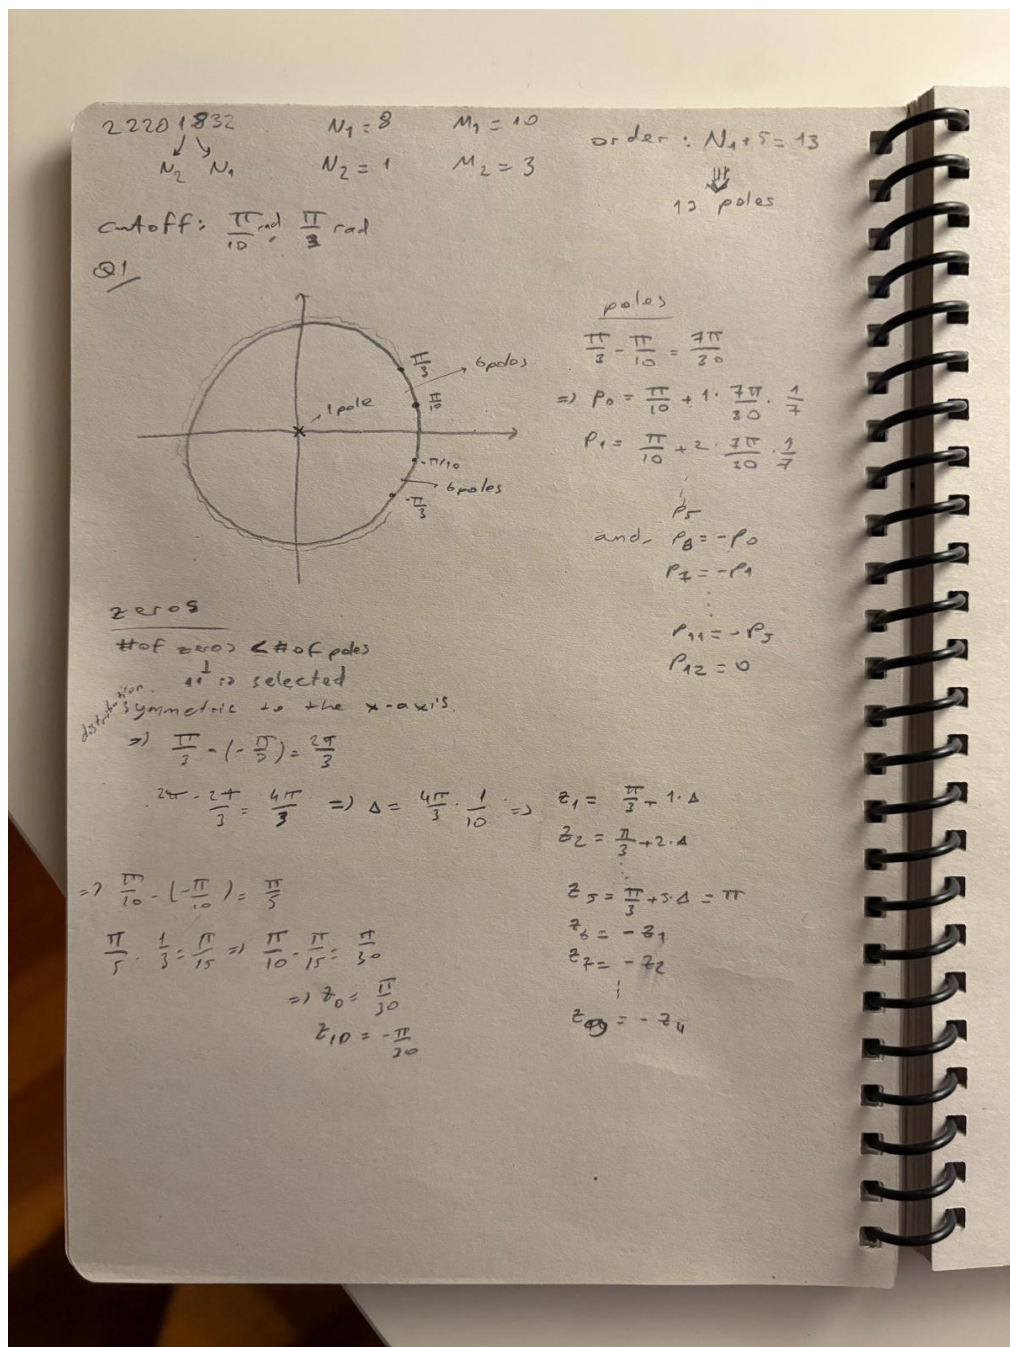 22201832
N₂ N₁
N₁ = 8 M₁ = 10
N₂ = 1 M₂ = 3
order : N₁+5 = 13
⇓
13 poles
cutoff: π/10 rad, π/3 rad
Q1
π/3
6 poles
π/10
1 pole
-π/10
6 poles
-π/3
poles
π/3 - π/10 = 7π/30
=> p₀ = π/10 + 1 · 7π/30 · 1/7
p₁ = π/10 + 2 · 7π/30 · 1/7
p₅
and, p₆ = -p₀
p₇ = -p₁
p₁₁ = -p₅
p₁₂ = 0
zeros
# of zeros < # of poles
↓
11 is selected
distribution symmetric to the x-axis.
=> π/3 - (-π/3) = 2π/3
2π - 2π/3 = 4π/3 => Δ = 4π/3 · 1/10 =>
z₁ = π/3 + 1·Δ
z₂ = π/3 + 2·Δ
z₅ = π/3 + 5·Δ = π
z₆ = - z₁
z₇ = - z₂
z₉ = - z₄
=> π/10 - (-π/10) = π/5
π/5 · 1/3 = π/15 => π/10 - π/15 = π/30
=> z₀ = π/30
z₁₀ = -π/30